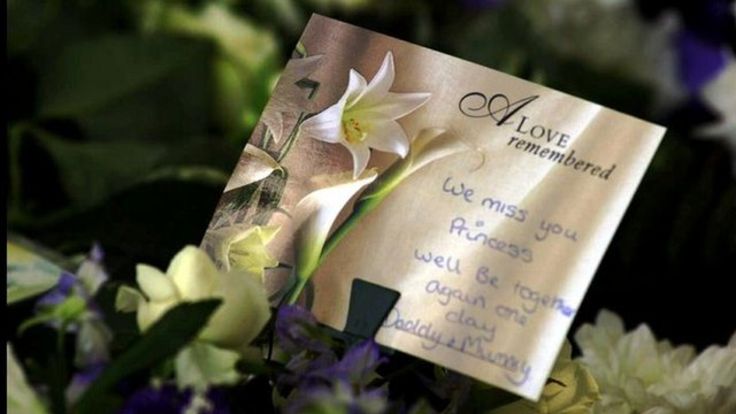 A LOVE
remembered
We miss you
Princess
well Be together
again one
day
Daddy & Mummy